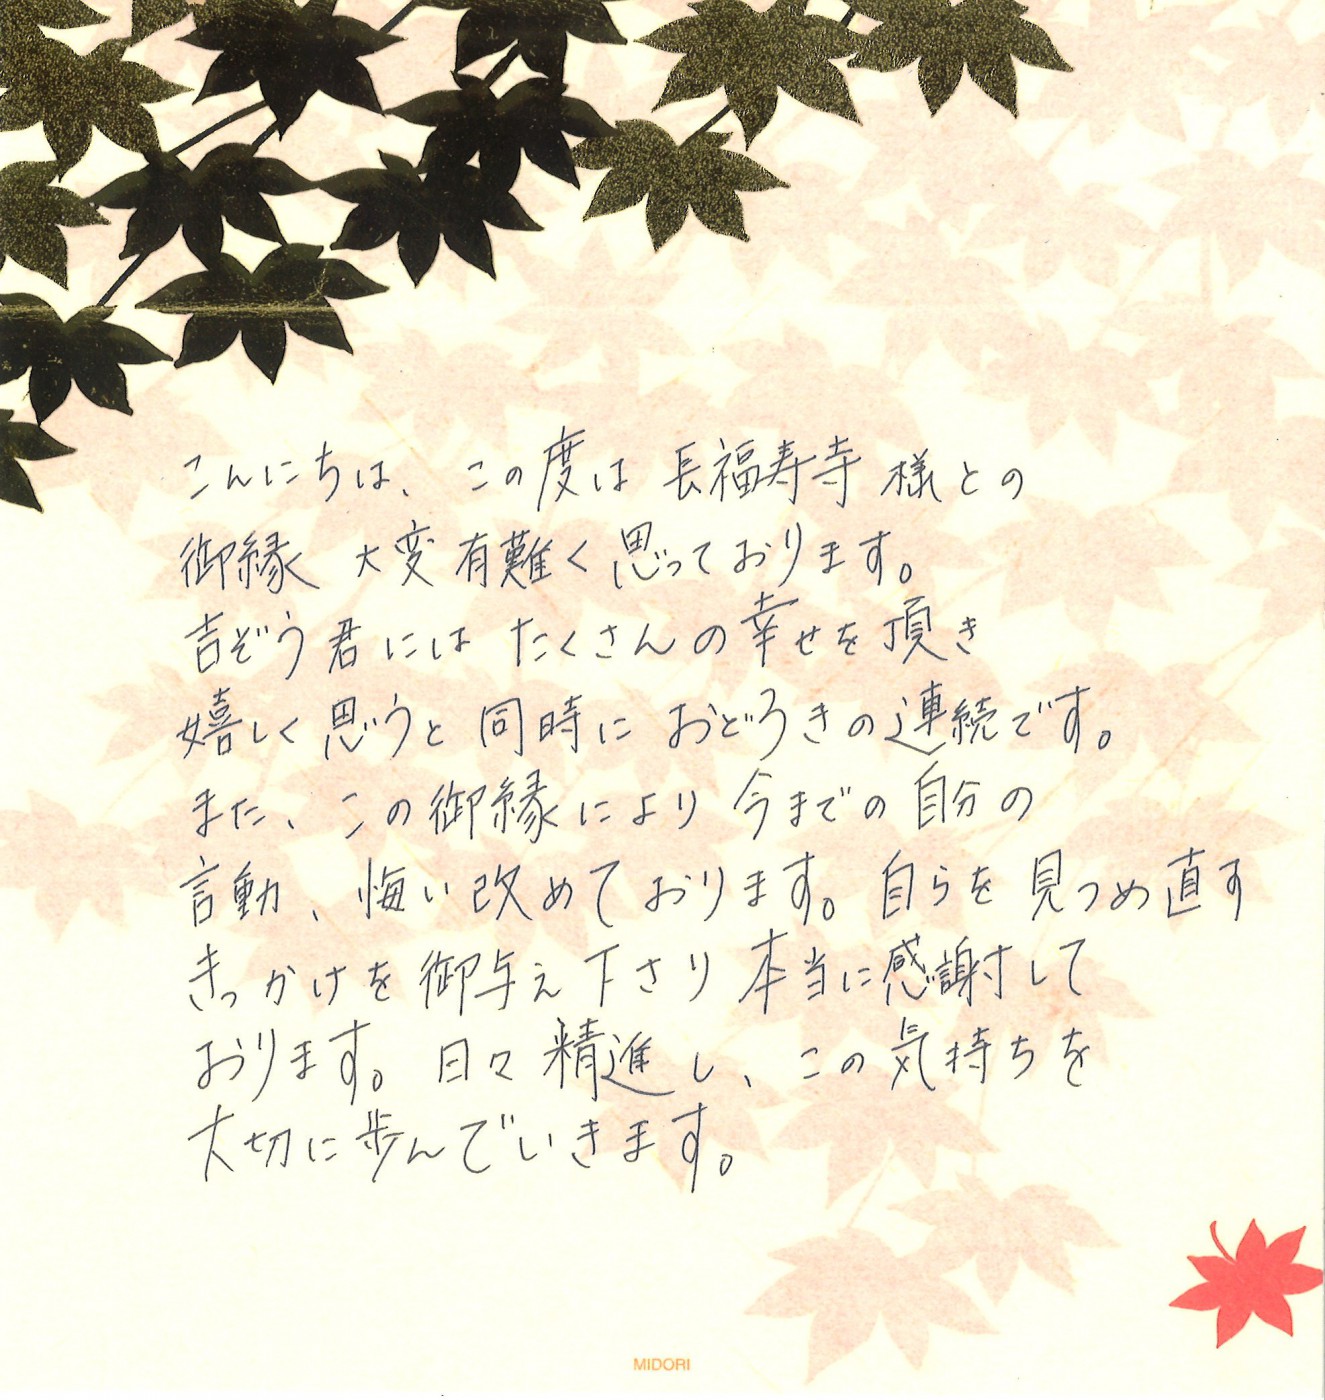 こんにちは、この度は 長福寿寺 様との
御縁 大変 有難く 思っております。
吉ぞう君には たくさんの幸せを頂き
嬉しく思うと同時に おどろきの連続です。
また、この御縁により 今までの自分の
言動、悔い改めております。自らを見つめ直す
きっかけを御与え下さり本当に感謝して
おります。日々精進し、この気持ちを
大切に歩んでいきます。
MIDORI